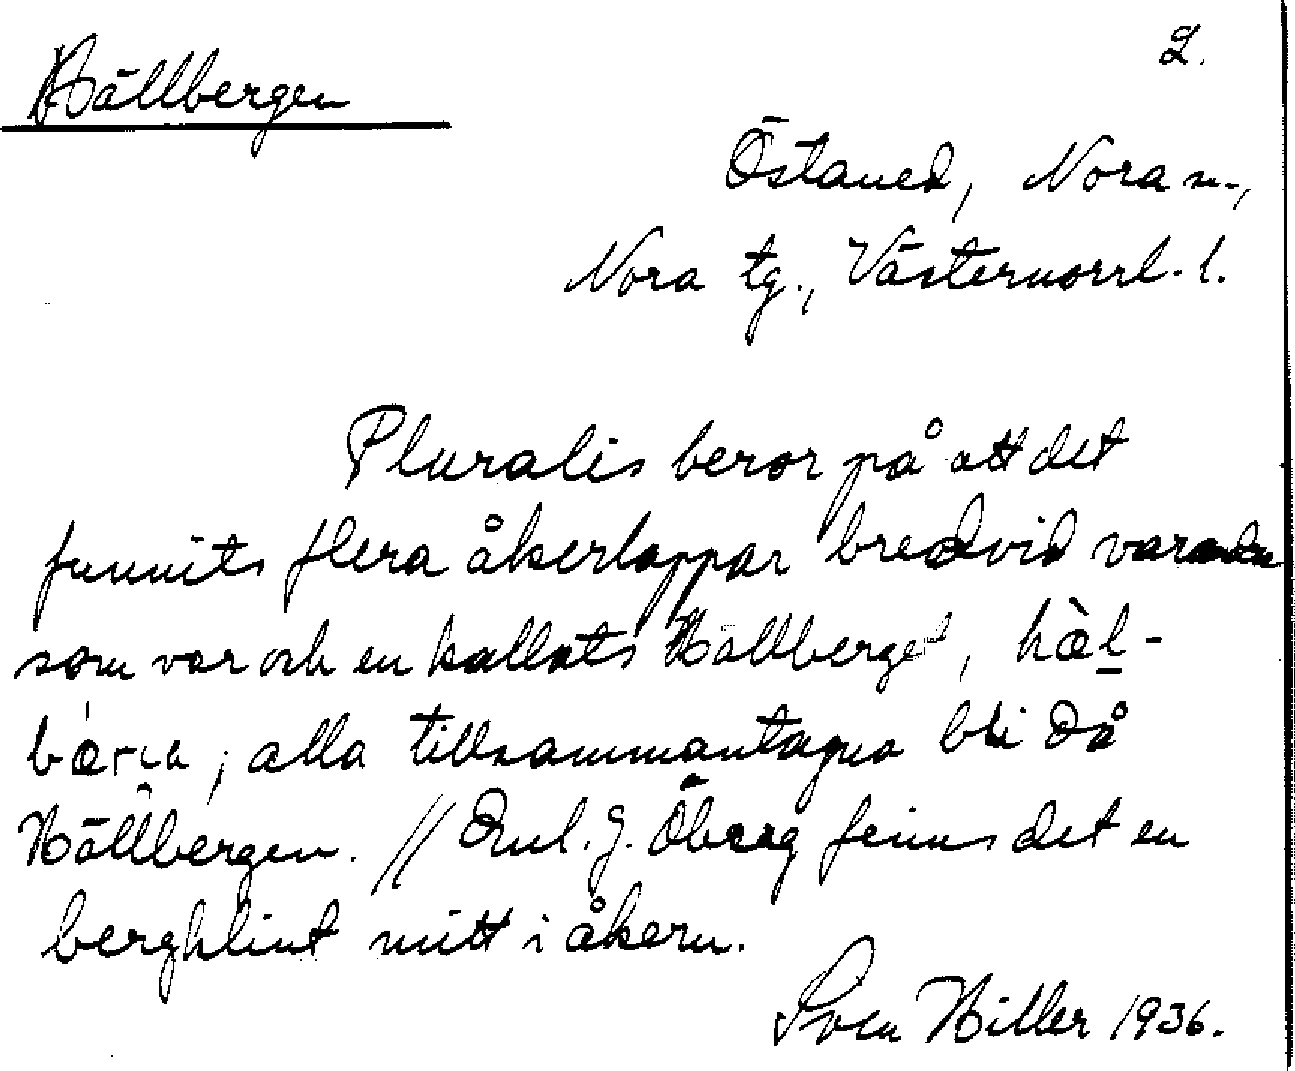 Hällbergen
2.
Östaned, Nora sn.,
Nora tg., Västernorrl. l.
Pluralis beror på att det
funnits flera åkerlappar bredvid varandra
som var och en kallats Hällberget, hæ̀l-
; alla tillsammantagna bli då
Hällbergen. // Enl. J. Öberg finns det en
bergklint mitt i åkern.
Sven Hiller 1936.